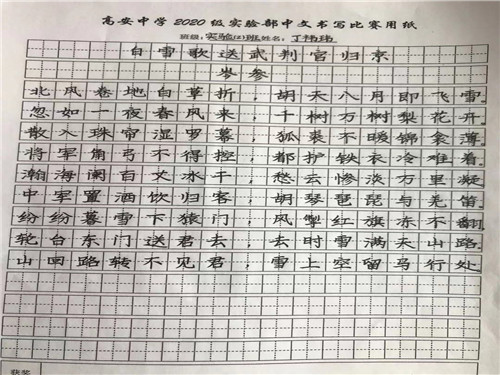 高安中学2020级实验部中文书写比赛用纸
班级:实验(2)班姓名:丁祎玮
白雪歌送武判官归京
岑参
北风卷地白草折,胡天八月即飞雪。
忽如一夜春风来,千树万树梨花开。
散入珠帘湿罗幕,狐裘不暖锦衾薄。
将军角弓不得控,都护铁衣冷难着。
瀚海阑百丈冰干,愁云惨淡万里凝。
中军置酒饮归客,胡琴琵琶与羌笛。
纷纷暮雪下猿门,风掣红旗冻不翻。
轮台东门送君去,去时雪满天山路。
山回路转不见君,雪上空留马行处
获奖